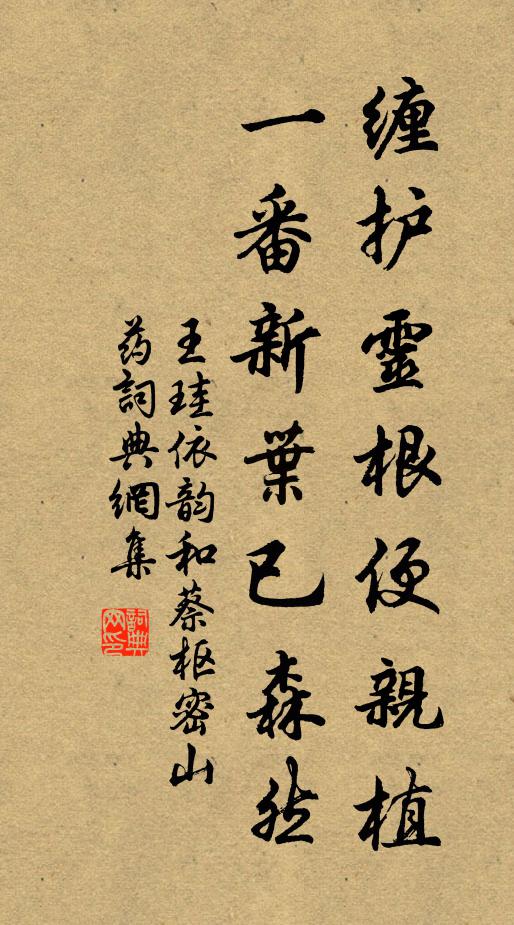 缠护靈根便親植
一番新葉已森然
王珪依韵和蔡枢密山
药詞典網集
詞典网印